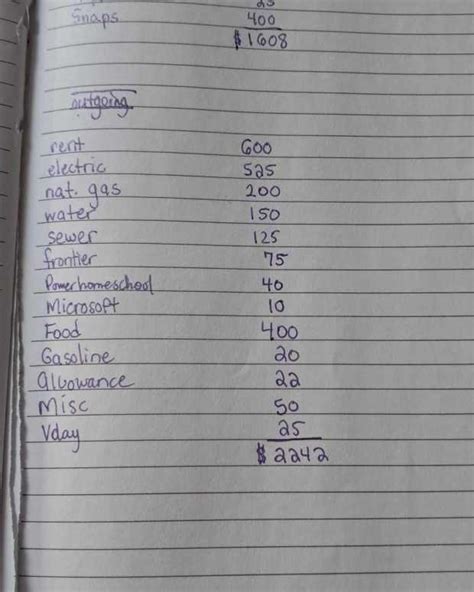 25
Snaps 400
$1608
outgoing
rent 600
electric 525
nat. gas 200
water 150
sewer 125
frontier 75
Powerhomeschool 40
Microsoft 10
Food 400
Gasoline 20
alluowance 22
Misc 50
Vday 25
$2242